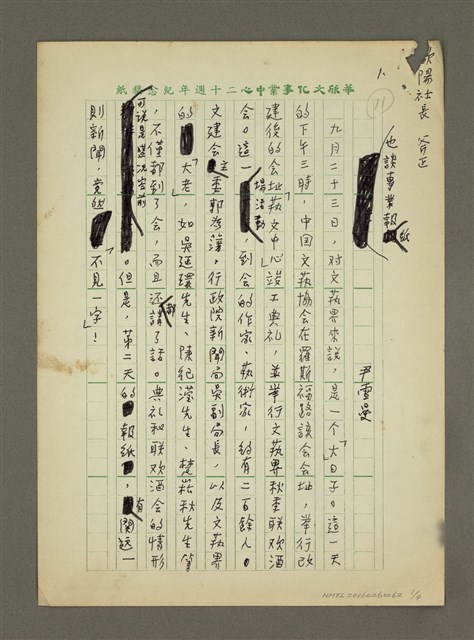 歐陽社長 斧正
1、
華欣文化事業中心二十週年紀念稿紙
11
也談專業報紙
尹雪曼
九月二十三日，對文藝界來說，是一个「大」日子。這一天
的下午三時，中国文艺協会在羅斯福路該会会址，舉行改
建後的会址「艺文中心」竣工典礼，並举行文艺界秋季联欢酒
会。這一場活動，到会的作家、艺術家，約有二百餘人。
文建会主委郭為藩，行政院新聞局吳副局長，以及文艺界
的「大老」，如吳延環先生、陳紀瀅先生、楚崧秋先生等
，不僅都到了会，而且还都講了話。典礼和联欢酒会的情形
可說是盛况空前。但是，第二天的報紙，有関這一
則新聞，竟然「不見一字」！
NMTL20160260062 1/4